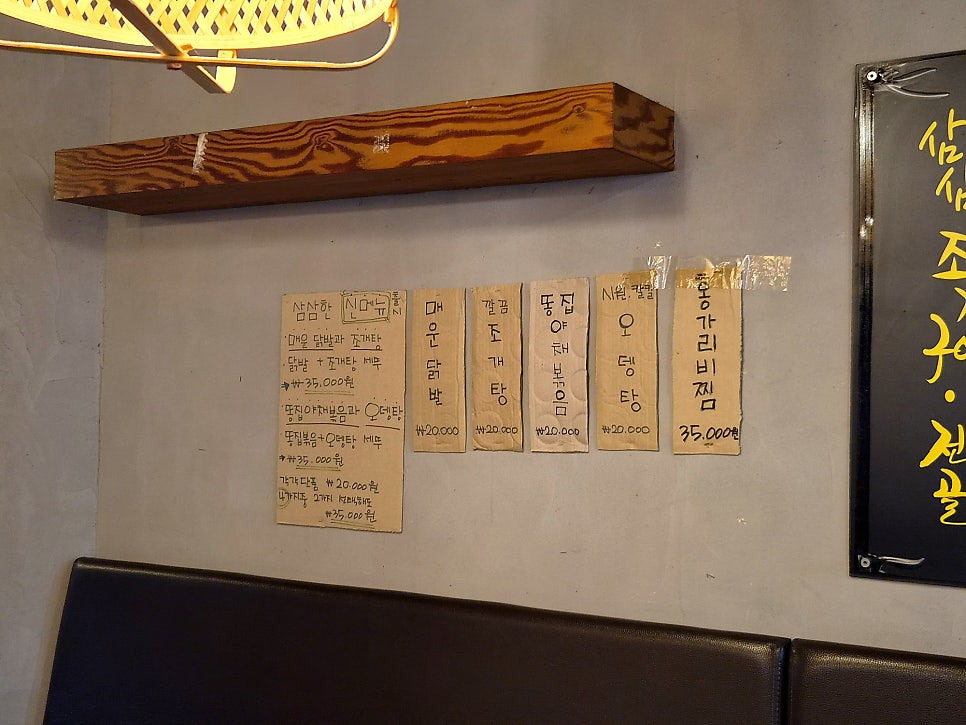 삼삼한 신메뉴 출시
·매운 닭발과 조개탕
·닭발 + 조개탕 세뚜
→₩35.000원
·똥집야채볶음과 오뎅탕
·똥집볶음+오뎅탕 세뚜
→₩35.000원
각각 단품 ₩20.000원
4가지중 2가지 선택해도
₩35.000원
매운닭발
₩20.000
깔끔
조개탕
₩20.000
똥집
야채볶음
₩20.000
시원, 칼칼
오뎅탕
₩20.000
홍가리비찜
35.000원
삼삼
조개
구이·전골